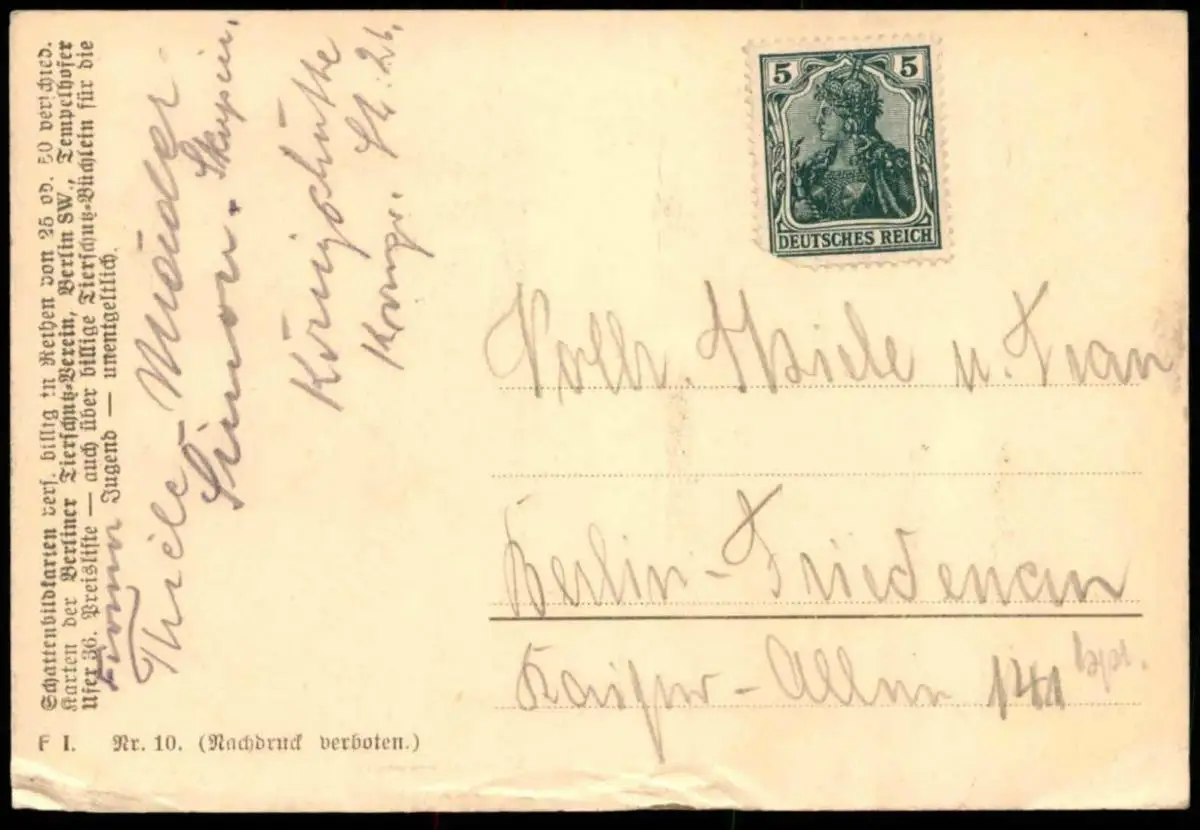 Schattenbildkarten vers. billig in Reihen von 25 od. 50 verschied.
Karten der Berliner Tierschutz-Verein, Berlin SW., Tempelhofer
Ufer 36. Preisliste — auch über billige Tierschutz-Büchlein für die
Jugend — unentgeltlich.
Thiele
Simon.
Königshütte
St. 26.
5 5
DEUTSCHES REICH
Thiele u. Frau
Berlin-Friedenau
Kaiser-Allee 141
F I. Nr. 10. (Nachdruck verboten.)